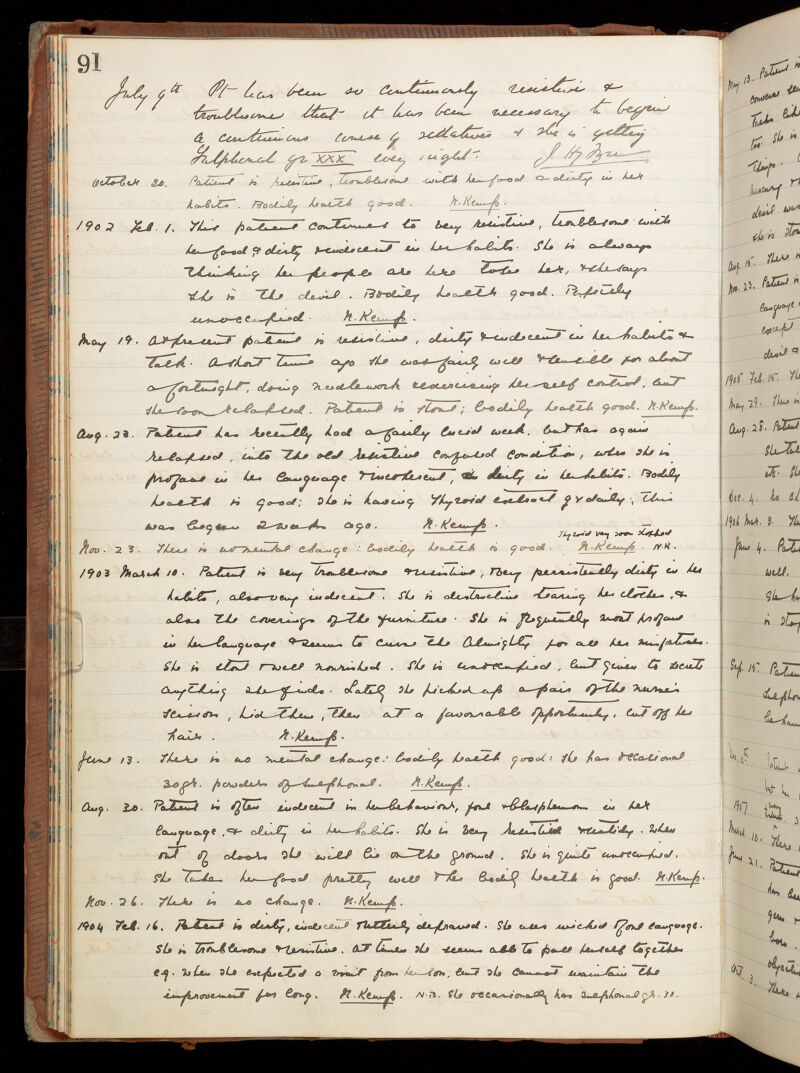 91
July 9th Pt has been so continuously resistive &
troublesome that it has been necessary to begin
a continuous course of sedatives & she is getting
Sulphonal gr XXX every night.
October 30. Patient is resistive, troublesome with her food & dirty in her
habits. Bodily health good. N. Kemp.
1902 Feb. 1. This patient continues to very resistive, troublesome with
her food & dirty & indecent in her habits. She is always
thinking her people are here to see her, & she says
she is the devil. Bodily health good. Perfectly
unoccupied. N. Kemp.
May 19. At present patient is resistive, dirty & indecent in her habits &
talk. A short time ago she was fairly well & sensible for about
a fortnight, doing needlework & exercising her self control, but
she soon relapsed. Patient is stout; bodily health good. N. Kemp.
Aug. 23. Patient has recently had a fairly lucid week, but has again
relapsed, into the old resistive confused condition, when she is
profane in her language & incoherent, & dirty in her habits. Bodily
health is good; she is having Thyroid extract gr v daily; this
was begun 2 weeks ago. N. Kemp.
Thyroid very soon stopped
Nov. 23. There is no mental change: bodily health is good. N. Kemp. N.K.
1903 March 10. Patient is very troublesome & resistive, very persistently dirty in her
habits, also very indecent. She is destructive tearing her clothes, &
also the coverings of the furniture. She is frequently most profane
in her language & seems to curse the Almighty for all her misfortunes.
She is stout & well nourished. She is unoccupied, but given to secrete
anything she finds. Lately she picked up a pair of the nurse's
scissors, hid them, then at a favourable opportunity, cut off her
hair. N. Kemp.
June 13. There is no mental change: bodily health good: she has occasional
30 gr. powders of sulphonal. N. Kemp.
Aug. 30. Patient is often indecent in her behaviour, foul & blasphemous in her
language, & dirty in her habits. She is very resistive & untidy. When
out of doors she will lie on the ground. She is quite unoccupied.
She takes her food pretty well & her bodily health is good. N. Kemp.
Nov. 26. There is no change. N. Kemp.
1904 Feb. 16. Patient is dirty, indecent & utterly depraved. She uses wicked & foul language.
She is troublesome & resistive. At times she seems able to pull herself together
e.g. when she expected a visit from her son, but she cannot maintain the
improvement for long. N. Kemp. N.B. She occasionally has sulphonal gr. 30.
May 13. Patient is
converse
talks
too. She is
things.
devil
she is
Aug. 15. There is
Nov. 23. Patient is
language
except
devil &
1905 Feb. 15. The
May 29. There is
Aug. 28. Patient
She
etc. She
Dec. 4. No
1906 Mar. 3. The
June 4. Patient
well.
She
is
Sep. 15. Patient
sulphonal
1907
very
March 10. There
June 21. Patient
has
Oct. 3. There